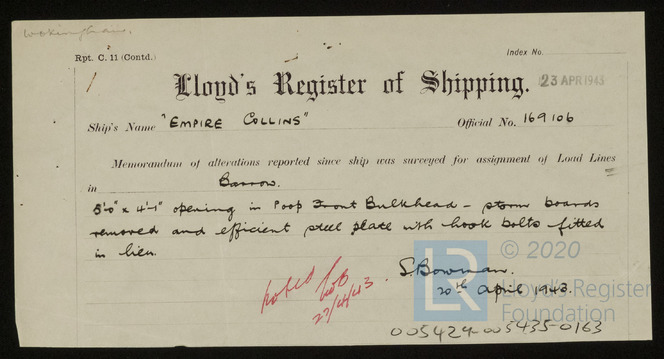 Wokingham.
Rpt. C. 11 (Contd.)
Index No.
1
Lloyd's Register of Shipping.
23 APR 1943
Ship's Name "EMPIRE COLLINS"
Official No. 169106
Memorandum of alterations reported since ship was surveyed for assignment of Load Lines
in Barrow.
5'-0" x 4'-1" opening in Poop Front Bulkhead - storm boards
removed and efficient steel plate with hook bolts fitted
in lieu.
LR © 2020
Lloyd's Register
Foundation
S. Bowman.
20th April 1943.
noted
27/4/43
005424-005435-0163